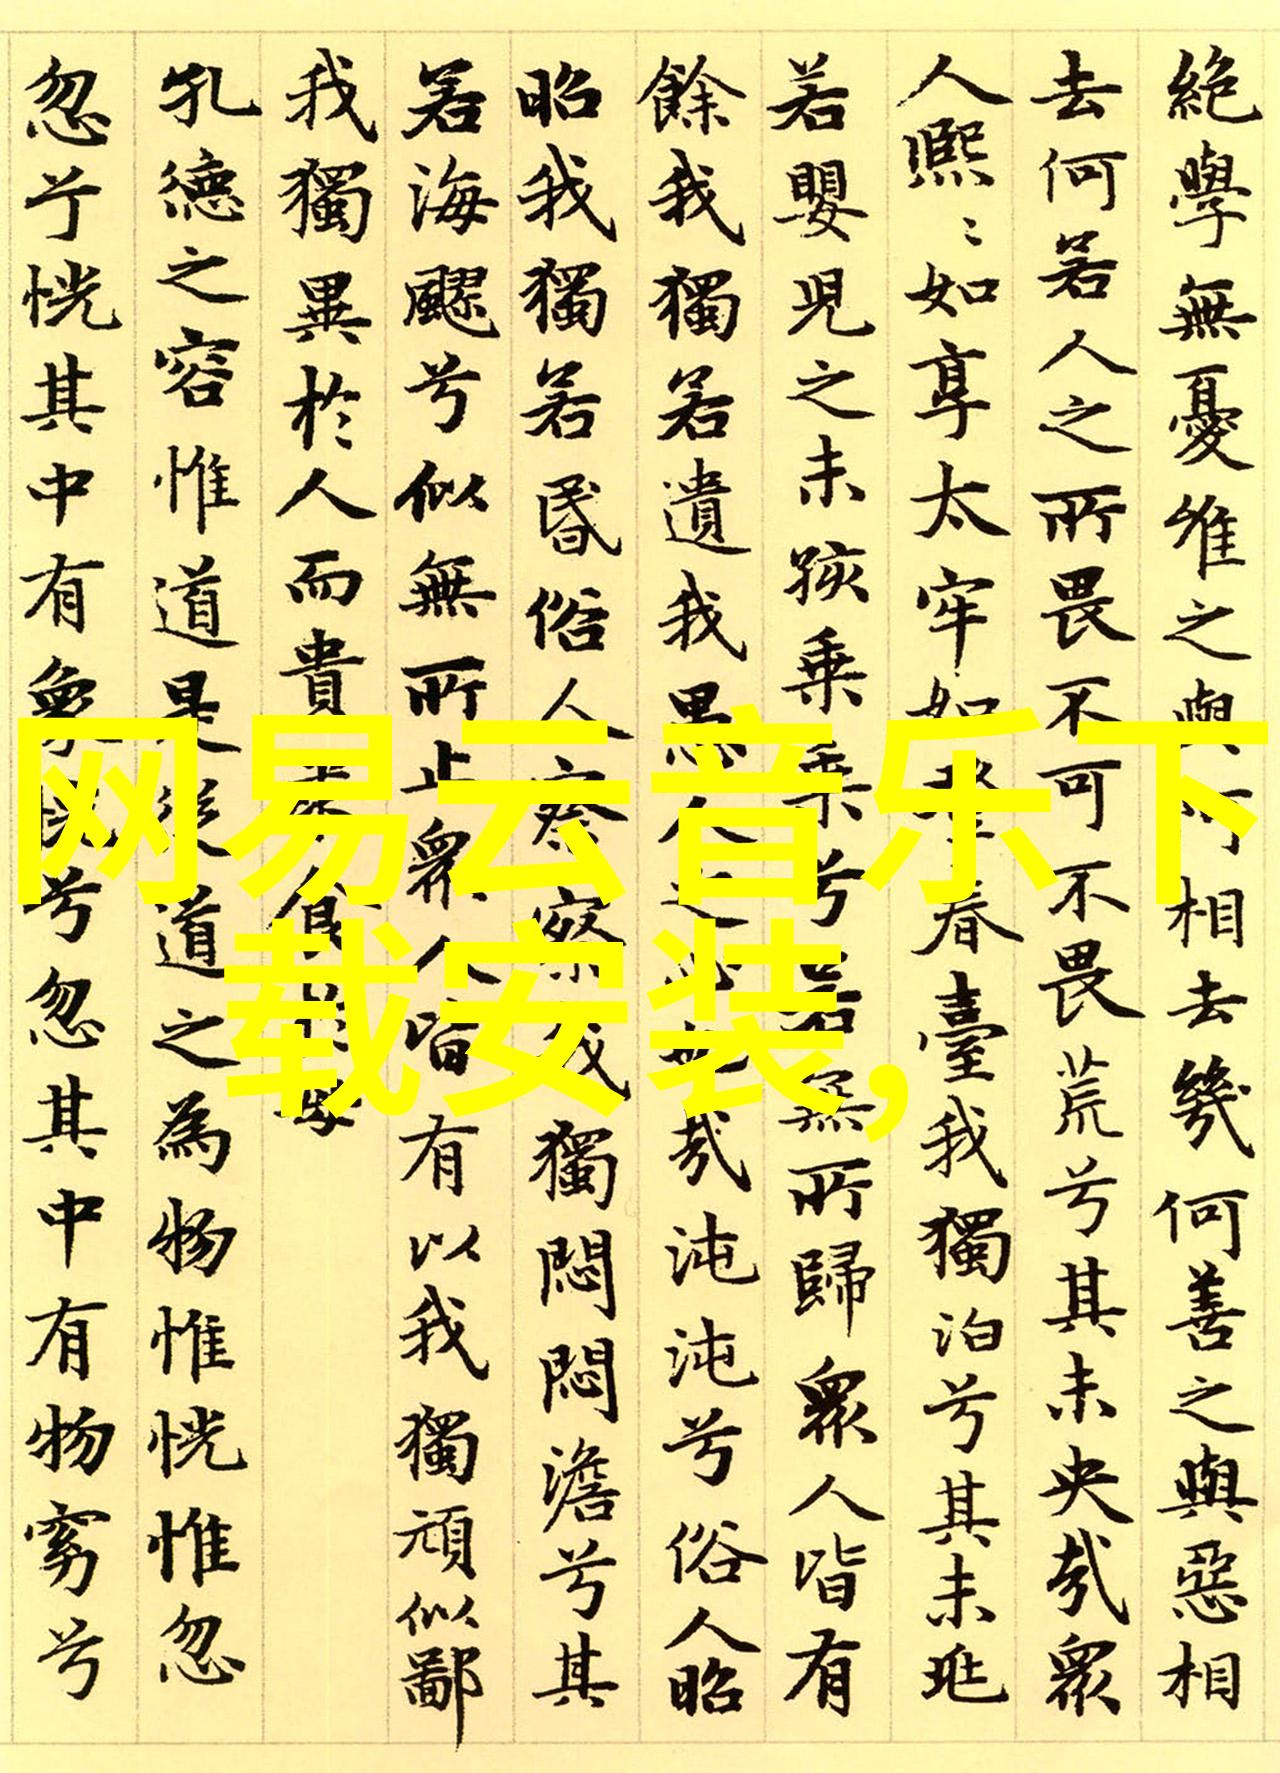 絶學無憂唯之與何相去幾何善之與惡相
去何若人之所畏不可不畏荒兮其未央哉眾
人熙〻如享太牢如登春臺我獨泊兮其未兆
若嬰兒之未孩乗乗兮若無所歸眾人皆有
餘我獨若遺我愚人之心也哉沌沌兮俗人昭
昭我獨若昏俗人察察我獨悶悶澹兮其
若海飂兮似無所止眾人皆有以我獨頑似鄙
我獨異於人而貴求食於母
孔德之容惟道是從道之為物惟恍惟忽
忽兮恍其中有象恍兮忽其中有物窈兮
网易云音乐下
载安装,